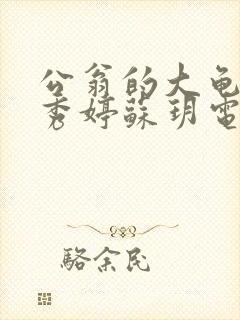 公翁的大龟
秀婷蘇玥電
駱余民